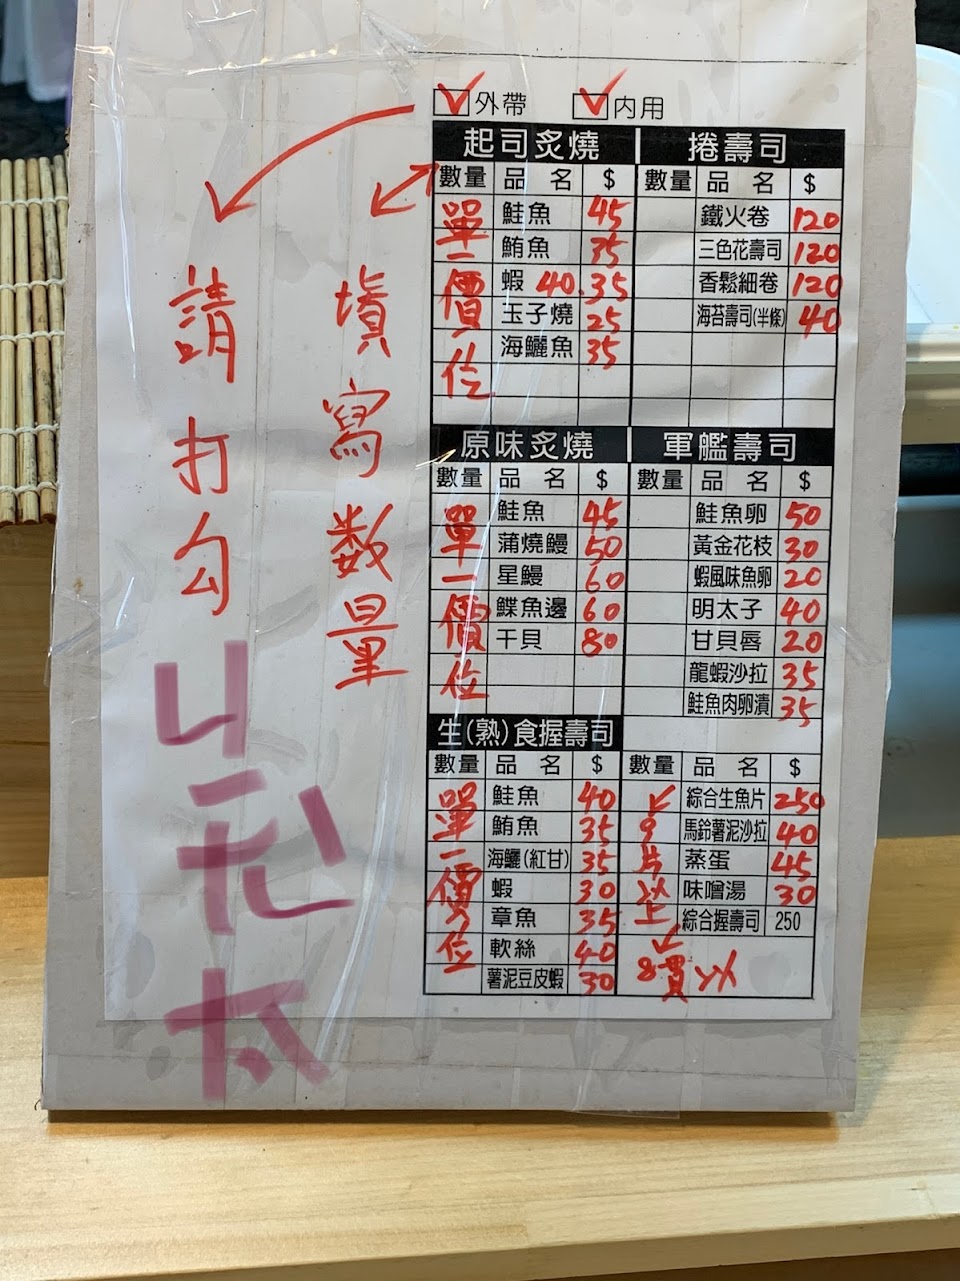 外帶 內用
請打勾
填寫数量
起司炙燒
數量 品名 $
單一價位
鮭魚 45
鮪魚 35
蝦 40.35
玉子燒 25
海鱺魚 35
捲壽司
數量 品名 $
鐵火卷 120
三色花壽司 120
香鬆細卷 120
海苔壽司(半條) 40
原味炙燒
數量 品名 $
單一價位
鮭魚 45
蒲燒鰻 50
星鰻 60
鰈魚邊 60
干貝 80
軍艦壽司
數量 品名 $
鮭魚卵 50
黃金花枝 30
蝦風味魚卵 20
明太子 40
甘貝唇 20
龍蝦沙拉 35
鮭魚肉卵漬 35
生(熟)食握壽司
數量 品名 $
單一價位
鮭魚 40
鮪魚 35
海鱺(紅甘) 35
蝦 30
章魚 35
軟絲 40
薯泥豆皮蝦 30
數量 品名 $
9片以上
綜合生魚片 250
馬鈴薯泥沙拉 40
蒸蛋 45
味噌湯 30
綜合握壽司 250
8貫以